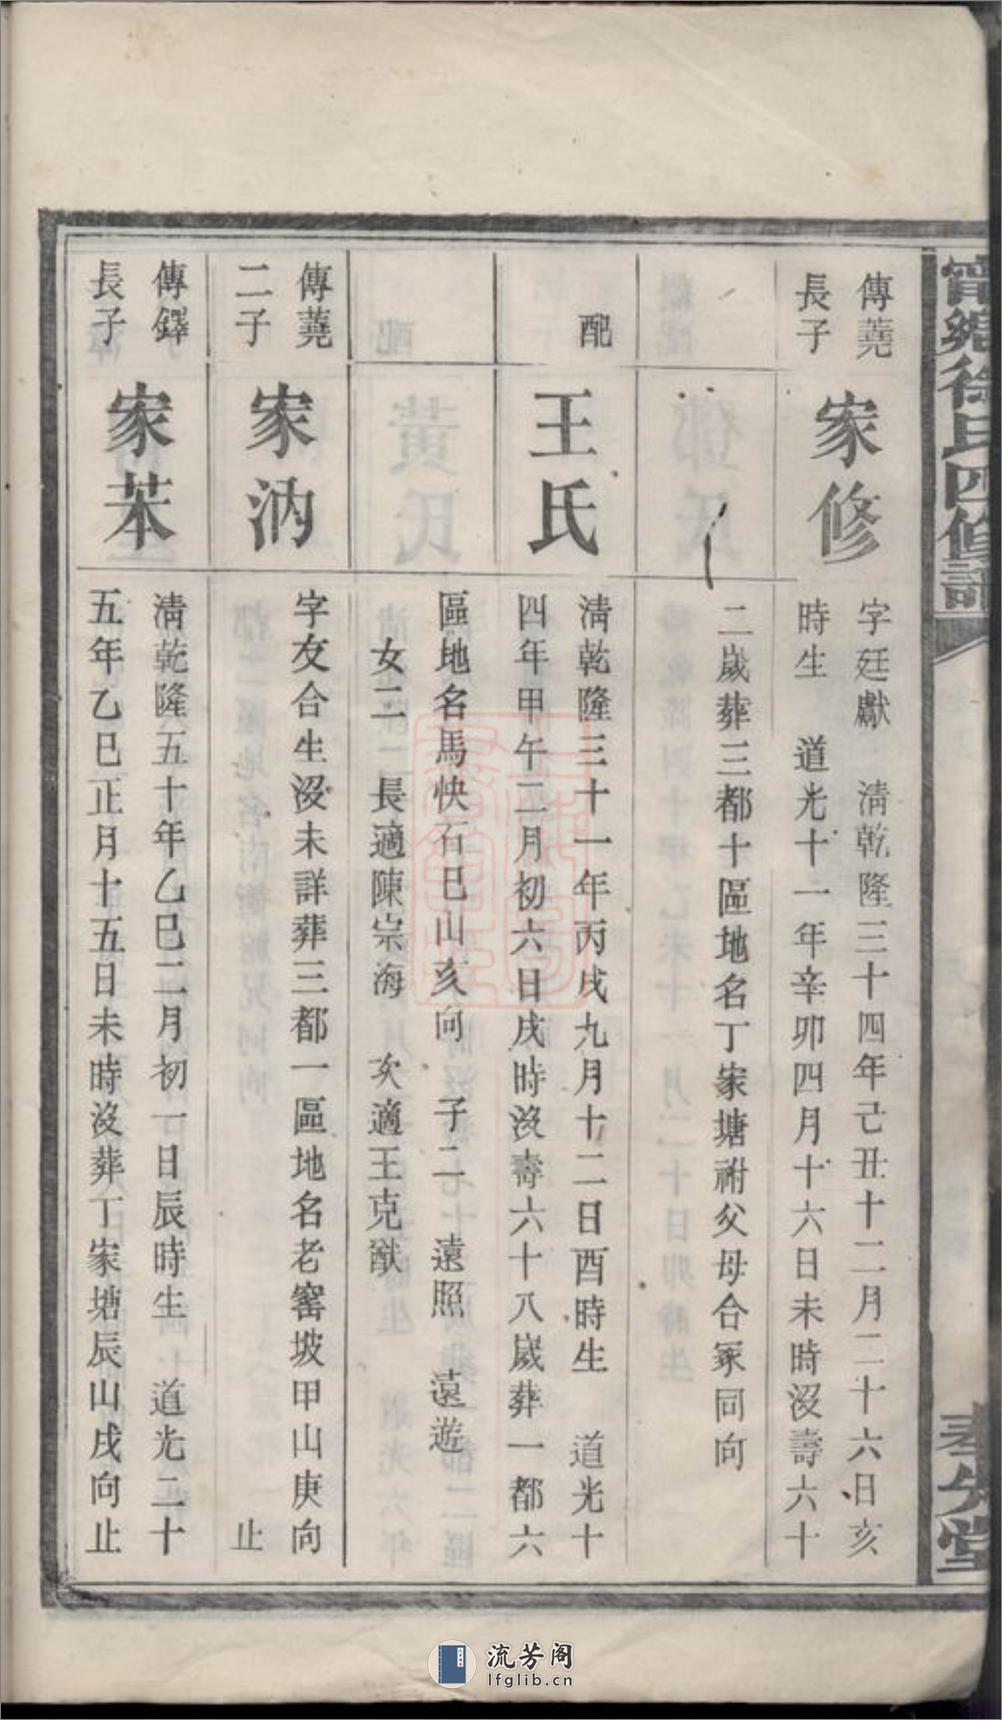 甯鄉徐氏四修譜
奉先堂
傳蕘
長子
家修
字廷獻　清乾隆三十四年己丑十二月二十六日亥
時生　道光十一年辛卯四月十六日未時沒壽六十
二歲葬三都十區地名丁家塘祔父母合冢同向
配
王氏
清乾隆三十一年丙戌九月十二日酉時生　道光十
四年甲午二月初六日戌時沒壽六十八歲葬一都六
區地名馬快石巳山亥向　子二　遠照　遠遊
女二　長適陳宗海　次適王克猷
傳蕘
二子
家汭
字友合生沒未詳葬三都一區地名老窰坡甲山庚向
止
傳鐸
長子
家苯
清乾隆五十年乙巳二月初一日辰時生　道光二十
五年乙巳正月十五日未時沒葬丁家塘辰山戌向止
流芳阁
lfglib.cn